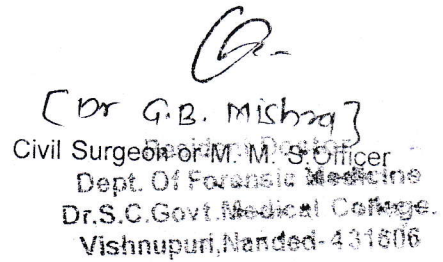 [Dr G.B. Mishra]
Resident Doctor
Civil Surgeon or M. M. S. Officer
Dept. Of Forensic Medicine
Dr.S.C.Govt.Medical College.
Vishnupuri,Nanded-431606